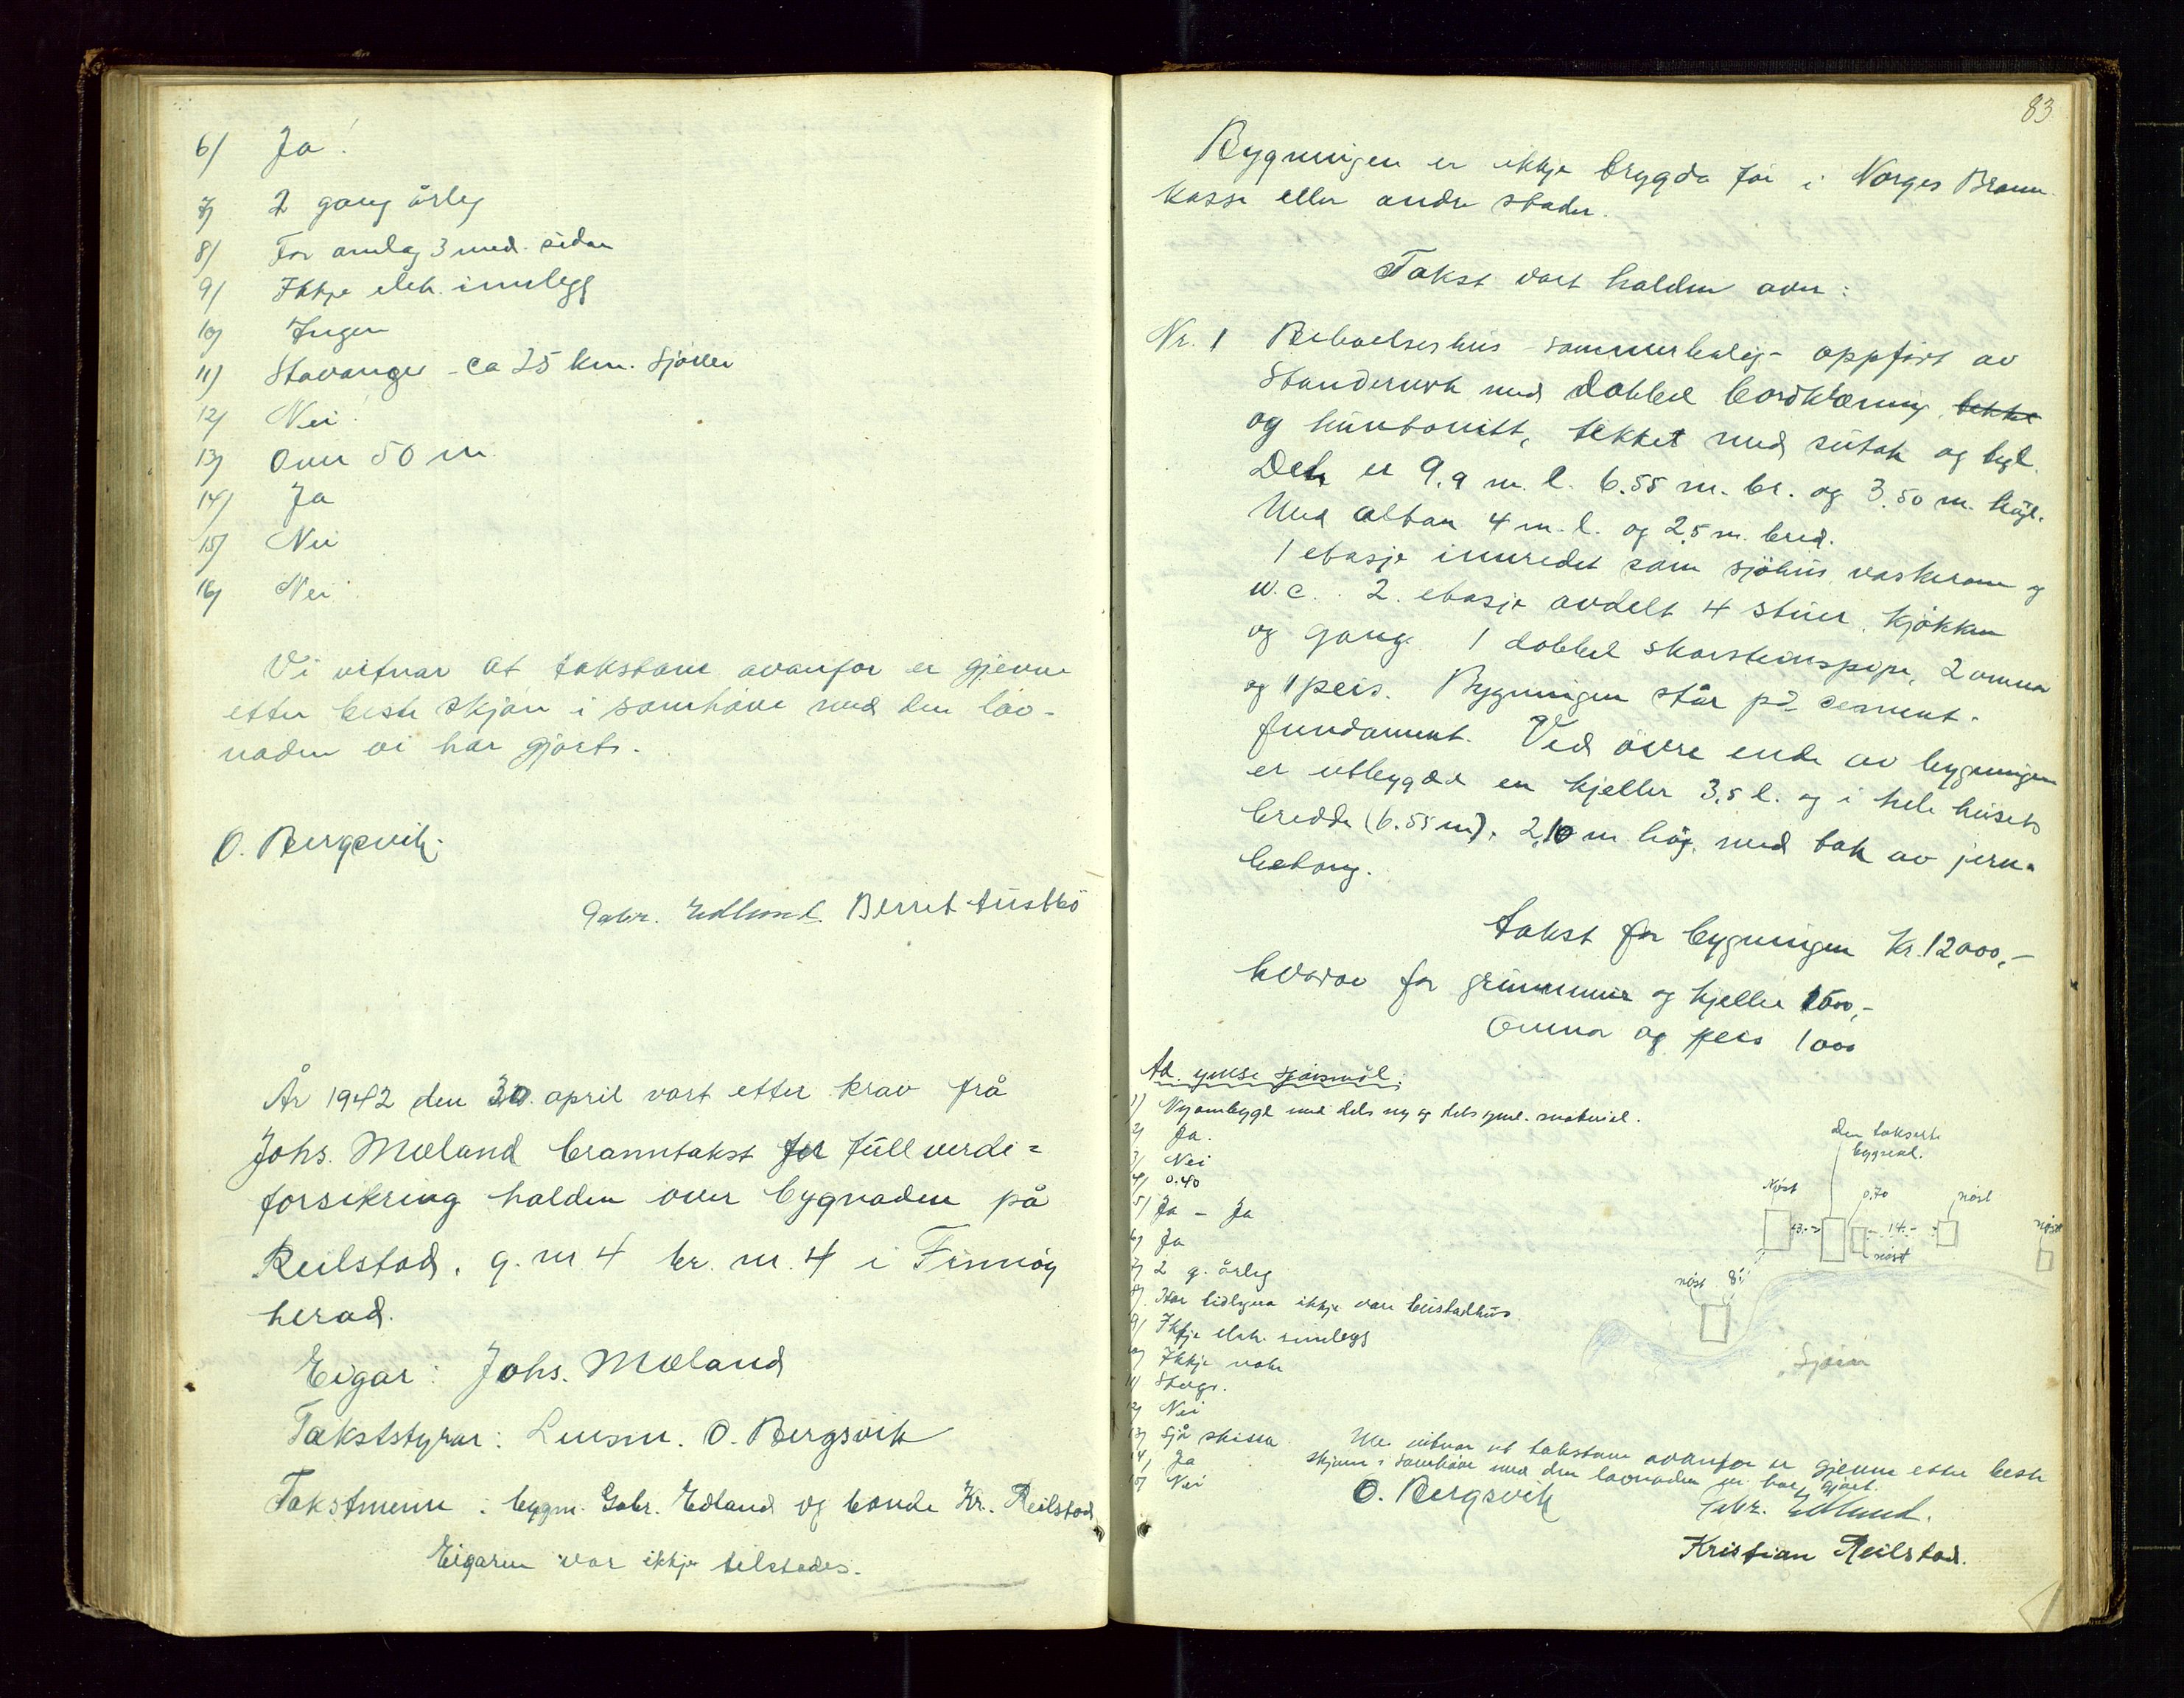 6/ Ja!
7/ 2 gang årleg
8/ For omlag 3 mnd. sidan
9/ Ikkje elek. innlegg
10/ Ingen
11/ Stavanger - ca 25 km. Sjøvei
12/ Nei!
13/ Over 50 m.
14/ Ja
15/ Nei
16/ Nei
Vi vitnar at takstane ovanfor er gjevne
etter beste skjøn i samhøve med den lov-
naden vi har gjort.
O. Bergsvik.
Gabr. Edland. Berret Austbö
År 1942 den 30. april vart etter krav frå
Johs. Mæland branntakst for fullverde=
forsikring halden over bygnaden på
Reilstad, g. nr 4 br. nr. 4 i Finnøy
herad.
Eigar: Johs. Mæland
Takststyrar: Lensm. O. Bergsvik
Takstmenn: bygm. Gabr. Edland og bonde Kr. Reilstad
Eigaren var ikkje tilstades.
83
Bygningen er ikkje trygda för i Norges Brann-
kasse eller andre stader.
Takst vart halden over:
Nr. 1 Beboelseshus - sommerbolig - oppført av
Standerverk med dobbel bordklæning, tekket
og huntonitt, tekket med sutak og tegl.
Det er 9.9 m. l. 6.55 m. br. og 3.50 m. högt.
Med altan 4 m. l. og 2.5 m. bred.
1 etasje innredet som sjöhus, vaskerom og
w.c. 2. etasje avdelt 4 stuer, kjökken
og gang. 1 dobbel skorsteinspipe, 2 omner
og 1 peis. Bygningen står på cement-
fundament. Ved övre ende av bygningen
er utbygde en kjeller 3,5 l. og i hele husets
bredde (6.55 m), 2,10 m hög, med tak av jern-
betong.
Takst for bygningen Kr. 12000,-
hvorav for grunnmur og kjeller 1500,-
Omnar og peis 1000
Ad. ymse spörsmål:
1/ Nyombygt med dels ny og dels gml. material.
2/ Ja.
3/ Nei
4/ 0.40
5/ Ja - Ja
6/ Ja
7/ 2 g. årleg
8/ Har tidlegare ikkje vore bustadhus
9/ Ikkje elek. innlegg
10/ Ikkje noke
11/ Stvgr.
12/ Nei
13/ Sjå skissa
14/ Ja
15/ Nei
den takserte
bygnad.
Nöst
0.70
nöst
nöst
13.-
14.-
nöst
nöst
8.-
Sjöen
Me vitnar at takstane ovanfor er gjevne etter beste
skjønn i samhøve med den lovnaden vi har gjort.
O. Bergsvik
Gabr. Edland.
Kristian Reilstad.